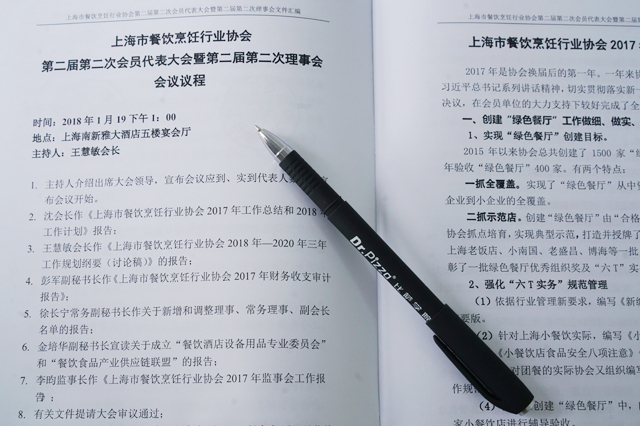 上海市餐饮烹饪行业协会第二届第二次会员代表大会暨第二届第二次理事会文件汇编
上海市餐饮烹饪行业协会
第二届第二次会员代表大会暨第二届第二次理事会
会议议程
时间：2018年1月19下午1：00
地点：上海南新雅大酒店五楼宴会厅
主持人：王慧敏会长
1. 主持人介绍出席大会领导，宣布会议应到、实到代表人
布会议开始。
2. 沈会长作《上海市餐饮烹饪行业协会2017年工作总结和2018年
工作计划》报告；
3. 王慧敏会长作《上海市餐饮烹饪行业协会2018年—2020年三年
工作规划纲要（讨论稿）》的报告；
4. 彭军副秘书长作《上海市餐饮烹饪行业协会2017年财务收支审计
报告》；
5. 徐长宁常务副秘书长作关于新增和调整理事、常务理事、副会长
名单的报告；
6. 金培华副秘书长宣读关于成立“餐饮酒店设备用品专业委员会”
和“餐饮食品产业供应链联盟”的报告；
7. 李昀监事长作《上海市餐饮烹饪行业协会2017年监事会工作报
告》；
8. 有关文件提请大会审议通过；
Dr.Pizza
比萨学院
上海市餐饮烹饪行业协会第二届
上海市餐饮烹饪行业协会2017
2017年是协会换届后的第一年。一年来协
习近平总书记系列讲话精神，切实贯彻落实新一
决议，在会员单位的大力支持下较好完成了全
一、创建“绿色餐厅”工作做细、做实、
1、实现“绿色餐厅”创建目标。
2015年以来协会总共创建了1500家“绿
年验收“绿色餐厅”400家。有两个特点：
一抓全覆盖。实现了“绿色餐厅”从中
企业到小企业的全覆盖。
二抓示范店。创建“绿色餐厅”由“合格
协会抓点培育，实现典型示范，打造并授牌了
上海老饭店、小南国、老盛昌、博海等一批
彰了一批绿色餐厅优秀组织奖及“六T”实
2、强化“六T实务”规范管理
（1）依据行业管理新要求，编写《新编
要版。
（2）针对上海小餐饮实际，编写《
《小餐饮店食品安全八项注意》
对团餐的实际协会又组织编写
作规
（4）
创建“绿色餐厅”中，
家小餐饮店进行辅导验收。